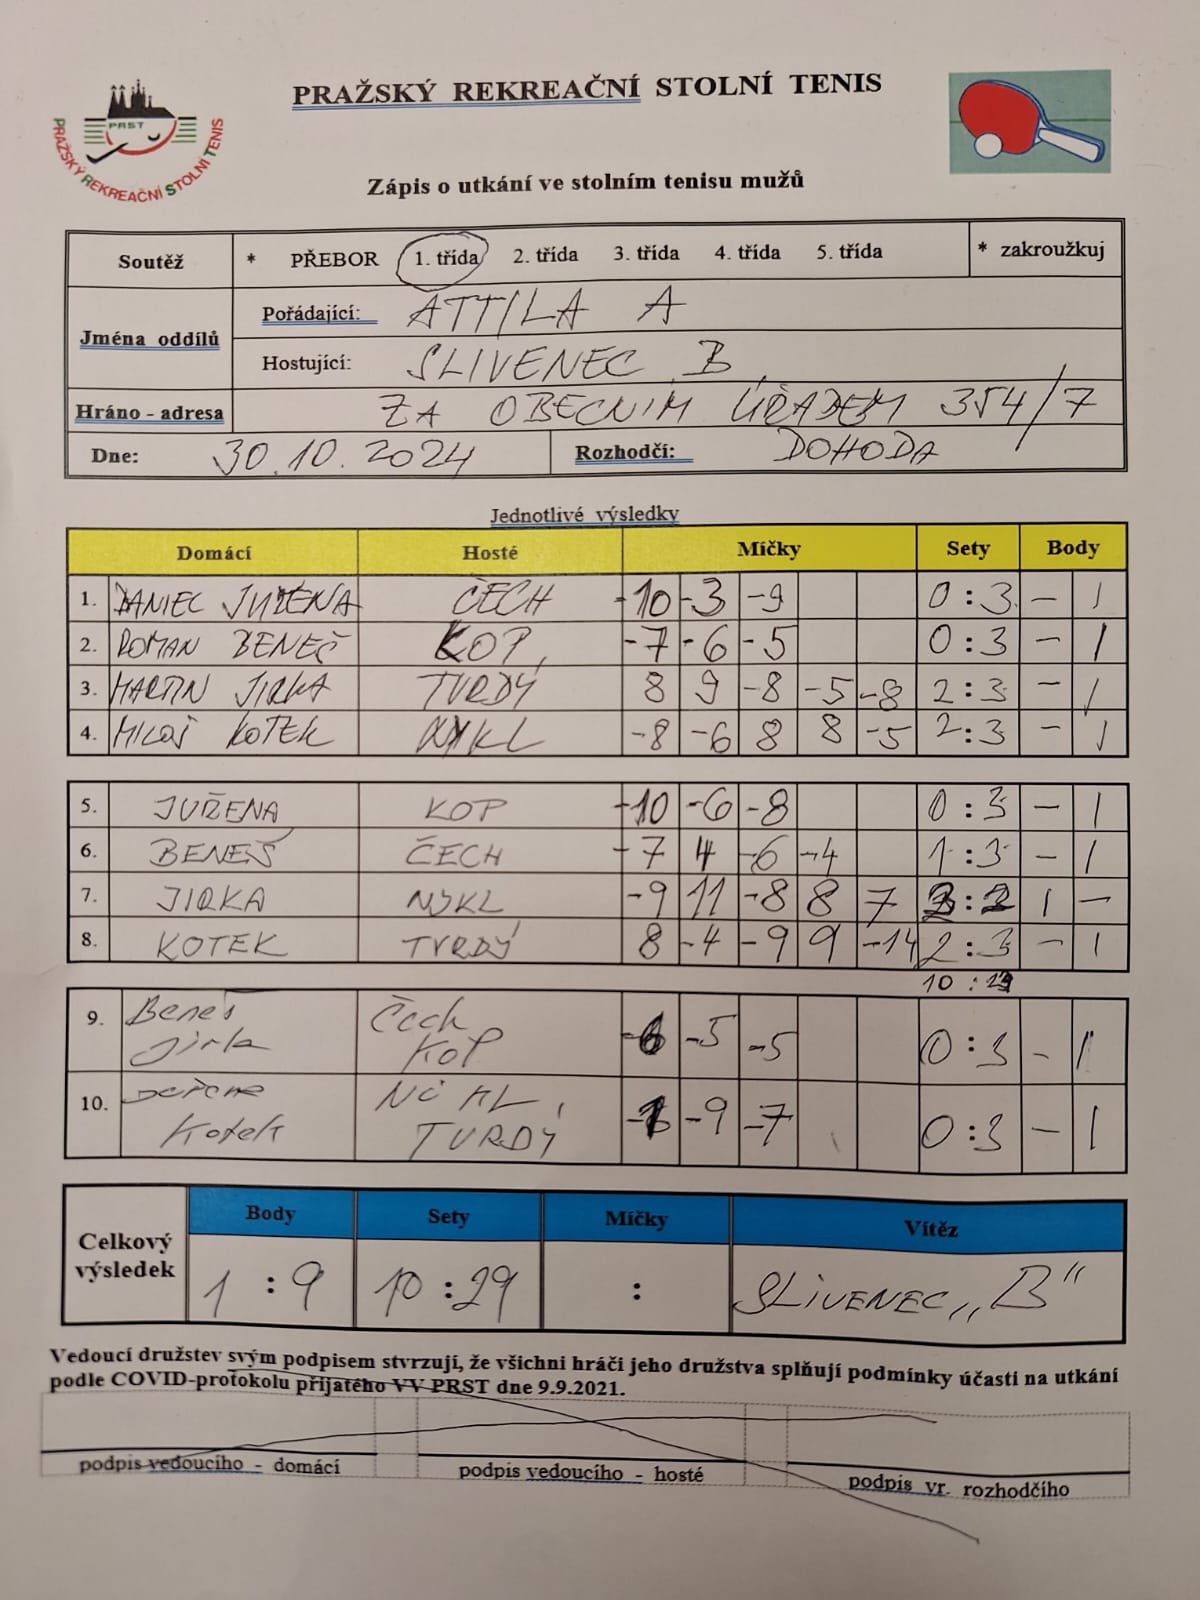 PRAŽSKÝ REKREAČNÍ STOLNÍ TENIS
PRST
PRAŽSKÝ REKREAČNÍ STOLNÍ TENIS
Zápis o utkání ve stolním tenisu mužů
Soutěž * PŘEBOR 1. třída 2. třída 3. třída 4. třída 5. třída * zakroužkuj
Jména oddílů
Pořádající: ATTILA A
Hostující: SLIVENEC B
Hráno - adresa ZA OBECNÍM ÚŘADEM 354/7
Dne: 30.10.2024 Rozhodčí: DOHODA
Jednotlivé výsledky
Domácí Hosté Míčky Sety Body
1. DANIEL JUŘENA ČECH -10 -3 -9 0:3 - 1
2. ROMAN BENEŠ KOP -7 -6 -5 0:3 - 1
3. MARTIN JIRKA TVRDÝ 8 9 -8 -5 -8 2:3 - 1
4. MILOŠ KOTEK NYKL -8 -6 8 8 -5 2:3 - 1
5. JUŘENA KOP -10 -6 -8 0:3 - 1
6. BENEŠ ČECH -7 4 -6 -4 1:3 - 1
7. JIRKA NYKL -9 11 -8 8 7 3:2 1 -
8. KOTEK TVRDÝ 8 -4 -9 9 -14 2:3 - 1
10 :
9. Beneš Čech
Jirka KOP -6 -5 -5 0:3 - 1
10. NÝKL,
Kotek TVRDÝ -9 -7 0:3 - 1
Celkový výsledek
Body Sety Míčky Vítěz
1 : 9 10 : 29 : SLIVENEC „B“
Vedoucí družstev svým podpisem stvrzují, že všichni hráči jeho družstva splňují podmínky účasti na utkání
podle COVID-protokolu přijatého VV PRST dne 9.9.2021.
podpis vedoucího - domácí podpis vedoucího - hosté podpis vr. rozhodčího